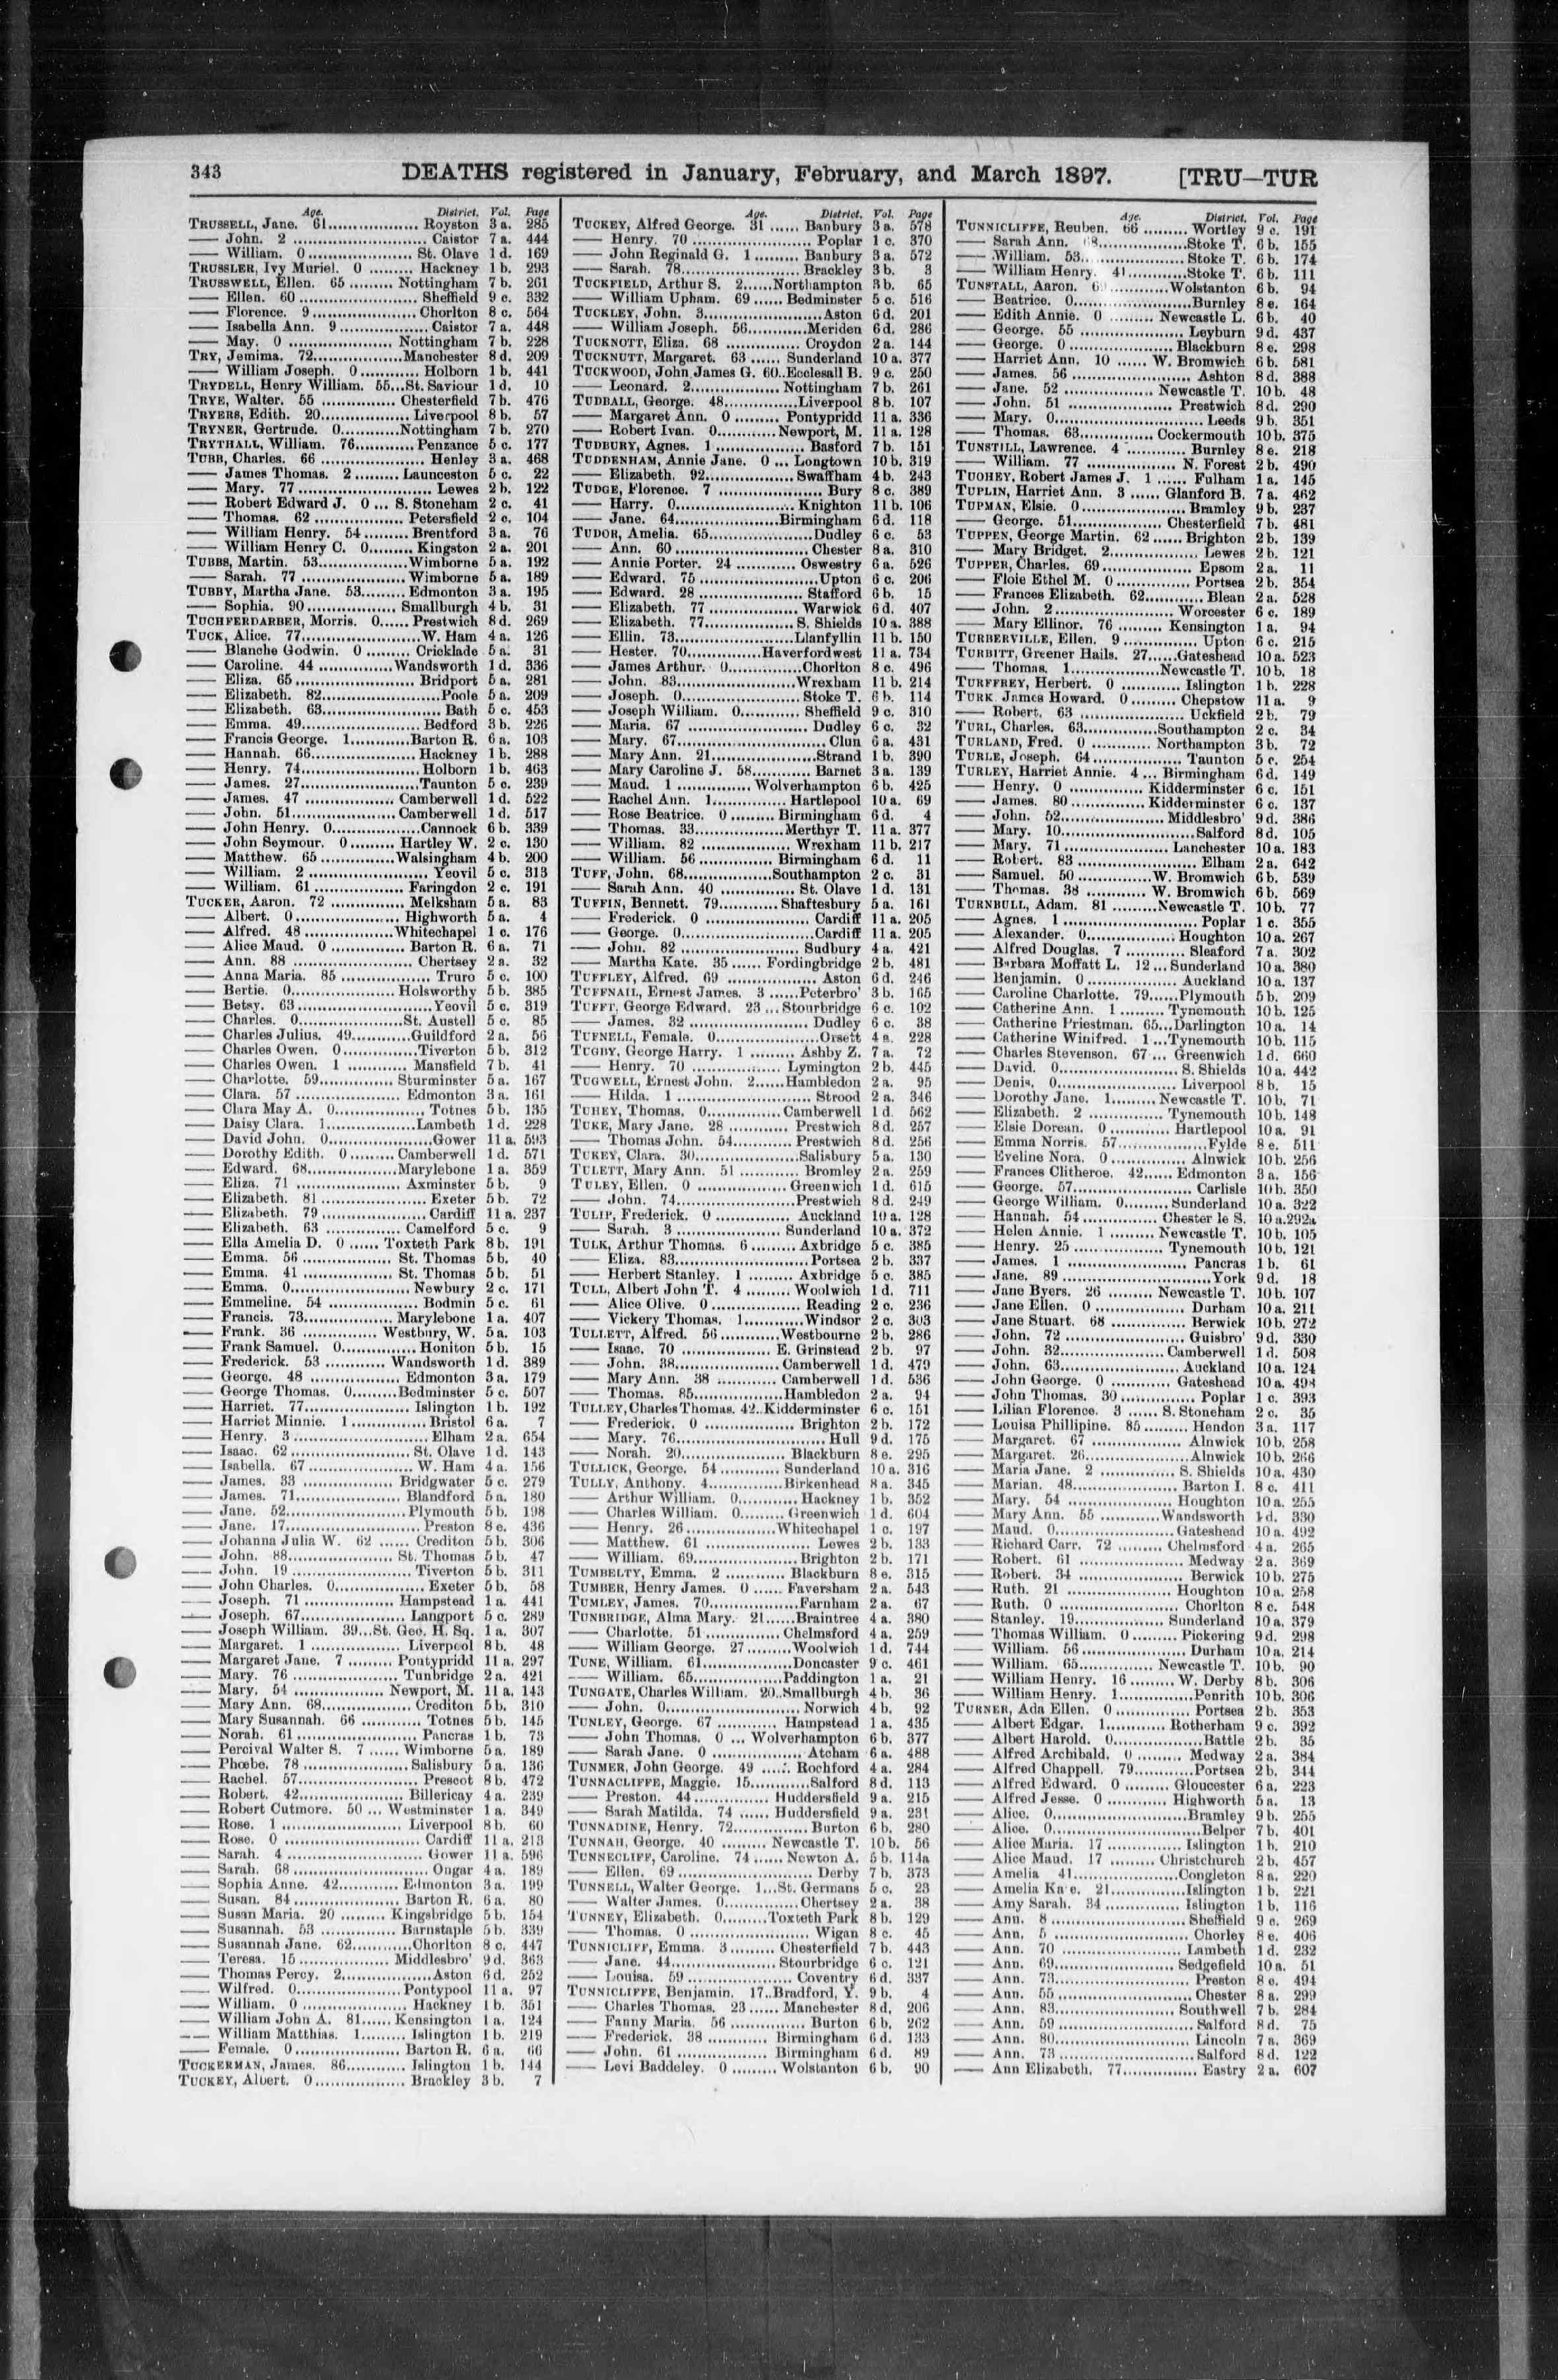 343 DEATHS registered in January, February, and March 1897. [TRU—TUR
Age. District. Vol. Page
TRUSSELL, Jane. 61 Royston 3 a. 285
—— John. 2 Caistor 7 a. 444
—— William. 0 St. Olave 1 d. 169
TRUSSLER, Ivy Muriel. 0 Hackney 1 b. 293
TRUSSWELL, Ellen. 65 Nottingham 7 b. 261
—— Ellen. 60 Sheffield 9 c. 332
—— Florence. 9 Chorlton 8 c. 564
—— Isabella Ann. 9 Caistor 7 a. 448
—— May. 0 Nottingham 7 b. 228
TRY, Jemima. 72 Manchester 8 d. 209
—— William Joseph. 0 Holborn 1 b. 441
TRYDELL, Henry William. 55...St. Saviour 1 d. 10
TRYE, Walter. 55 Chesterfield 7 b. 476
TRYERS, Edith. 20 Liverpool 8 b. 57
TRYNER, Gertrude. 0 Nottingham 7 b. 270
TRYTHALL, William. 76 Penzance 5 c. 177
TUBB, Charles. 66 Henley 3 a. 468
—— James Thomas. 2 Launceston 5 c. 22
—— Mary. 77 Lewes 2 b. 122
—— Robert Edward J. 0 ... S. Stoneham 2 c. 41
—— Thomas. 62 Petersfield 2 c. 104
—— William Henry. 54 Brentford 3 a. 76
—— William Henry C. 0 Kingston 2 a. 201
TUBBS, Martin. 53 Wimborne 5 a. 192
—— Sarah. 77 Wimborne 5 a. 189
TUBBY, Martha Jane. 53 Edmonton 3 a. 195
—— Sophia. 90 Smallburgh 4 b. 31
TUCHFERDARBER, Morris. 0 Prestwich 8 d. 269
TUCK, Alice. 77 W. Ham 4 a. 126
—— Blanche Godwin. 0 Cricklade 5 a. 31
—— Caroline. 44 Wandsworth 1 d. 336
—— Eliza. 65 Bridport 5 a. 281
—— Elizabeth. 82 Poole 5 a. 209
—— Elizabeth. 63 Bath 5 c. 453
—— Emma. 49 Bedford 3 b. 226
—— Francis George. 1 Barton R. 6 a. 103
—— Hannah. 66 Hackney 1 b. 288
—— Henry. 74 Holborn 1 b. 463
—— James. 27 Taunton 5 c. 239
—— James. 47 Camberwell 1 d. 522
—— John. 51 Camberwell 1 d. 517
—— John Henry. 0 Cannock 6 b. 339
—— John Seymour. 0 Hartley W. 2 c. 130
—— Matthew. 65 Walsingham 4 b. 200
—— William. 2 Yeovil 5 c. 313
—— William. 61 Faringdon 2 c. 191
TUCKER, Aaron. 72 Melksham 5 a. 83
—— Albert. 0 Highworth 5 a. 4
—— Alfred. 48 Whitechapel 1 c. 176
—— Alice Maud. 0 Barton R. 6 a. 71
—— Ann. 88 Chertsey 2 a. 32
—— Anna Maria. 85 Truro 5 c. 100
—— Bertie. 0 Holsworthy 5 b. 385
—— Betsy. 63 Yeovil 5 c. 319
—— Charles. 0 St. Austell 5 c. 85
—— Charles Julius. 49 Guildford 2 a. 56
—— Charles Owen. 0 Tiverton 5 b. 312
—— Charles Owen. 1 Mansfield 7 b. 41
—— Charlotte. 59 Sturminster 5 a. 167
—— Clara. 57 Edmonton 3 a. 161
—— Clara May A. 0 Totnes 5 b. 135
—— Daisy Clara. 1 Lambeth 1 d. 228
—— David John. 0 Gower 11 a. 593
—— Dorothy Edith. 0 Camberwell 1 d. 571
—— Edward. 68 Marylebone 1 a. 359
—— Eliza. 71 Axminster 5 b. 9
—— Elizabeth. 81 Exeter 5 b. 72
—— Elizabeth. 79 Cardiff 11 a. 237
—— Elizabeth. 63 Camelford 5 c. 9
—— Ella Amelia D. 0 Toxteth Park 8 b. 191
—— Emma. 56 St. Thomas 5 b. 40
—— Emma. 41 St. Thomas 5 b. 51
—— Emma. 0 Newbury 2 c. 171
—— Emmeline. 54 Bodmin 5 c. 61
—— Francis. 73 Marylebone 1 a. 407
—— Frank. 36 Westbury, W. 5 a. 103
—— Frank Samuel. 0 Honiton 5 b. 15
—— Frederick. 53 Wandsworth 1 d. 389
—— George. 48 Edmonton 3 a. 179
—— George Thomas. 0 Bedminster 5 c. 507
—— Harriet. 77 Islington 1 b. 192
—— Harriet Minnie. 1 Bristol 6 a. 7
—— Henry. 3 Elham 2 a. 654
—— Isaac. 62 St. Olave 1 d. 143
—— Isabella. 67 W. Ham 4 a. 156
—— James. 33 Bridgwater 5 c. 279
—— James. 71 Blandford 5 a. 180
—— Jane. 52 Plymouth 5 b. 198
—— Jane. 17 Preston 8 e. 436
—— Johanna Julia W. 62 Crediton 5 b. 306
—— John. 88 St. Thomas 5 b. 47
—— John. 19 Tiverton 5 b. 311
—— John Charles. 0 Exeter 5 b. 58
—— Joseph. 71 Hampstead 1 a. 441
—— Joseph. 67 Langport 5 c. 289
—— Joseph William. 39...St. Geo. H. Sq. 1 a. 307
—— Margaret. 1 Liverpool 8 b. 48
—— Margaret Jane. 7 Pontypridd 11 a. 297
—— Mary. 76 Tunbridge 2 a. 421
—— Mary. 54 Newport, M. 11 a. 143
—— Mary Ann. 68 Crediton 5 b. 310
—— Mary Susannah. 66 Totnes 5 b. 145
—— Norah. 61 Pancras 1 b. 73
—— Percival Walter S. 7 Wimborne 5 a. 189
—— Phœbe. 78 Salisbury 5 a. 136
—— Rachel. 57 Prescot 8 b. 472
—— Robert. 42 Billericay 4 a. 239
—— Robert Cutmore. 50 ... Westminster 1 a. 349
—— Rose. 1 Liverpool 8 b. 60
—— Rose. 0 Cardiff 11 a. 213
—— Sarah. 4 Gower 11 a. 596
—— Sarah. 68 Ongar 4 a. 189
—— Sophia Anne. 42 Edmonton 3 a. 199
—— Susan. 84 Barton R. 6 a. 80
—— Susan Maria. 20 Kingsbridge 5 b. 154
—— Susannah. 53 Barnstaple 5 b. 339
—— Susannah Jane. 62 Chorlton 8 c. 447
—— Teresa. 15 Middlesbro' 9 d. 363
—— Thomas Percy. 2 Aston 6 d. 252
—— Wilfred. 0 Pontypool 11 a. 97
—— William. 0 Hackney 1 b. 351
—— William John A. 81 Kensington 1 a. 124
—— William Matthias. 1 Islington 1 b. 219
—— Female. 0 Barton R. 6 a. 66
TUCKERMAN, James. 86 Islington 1 b. 144
TUCKEY, Albert. 0 Brackley 3 b. 7
Age. District. Vol. Page
TUCKEY, Alfred George. 31 Banbury 3 a. 578
—— Henry. 70 Poplar 1 c. 370
—— John Reginald G. 1 Banbury 3 a. 572
—— Sarah. 78 Brackley 3 b. 3
TUCKFIELD, Arthur S. 2 Northampton 3 b. 65
—— William Upham. 69 Bedminster 5 c. 516
TUCKLEY, John. 3 Aston 6 d. 201
—— William Joseph. 56 Meriden 6 d. 286
TUCKNOTT, Eliza. 68 Croydon 2 a. 144
TUCKNUTT, Margaret. 63 Sunderland 10 a. 377
TUCKWOOD, John James G. 60..Ecclesall B. 9 c. 250
—— Leonard. 2 Nottingham 7 b. 261
TUDBALL, George. 48 Liverpool 8 b. 107
—— Margaret Ann. 0 Pontypridd 11 a. 336
—— Robert Ivan. 0 Newport, M. 11 a. 128
TUDBURY, Agnes. 1 Basford 7 b. 151
TUDDENHAM, Annie Jane. 0 ... Longtown 10 b. 319
—— Elizabeth. 92 Swaffham 4 b. 243
TUDGE, Florence. 7 Bury 8 c. 389
—— Harry. 0 Knighton 11 b. 106
—— Jane. 64 Birmingham 6 d. 118
TUDOR, Amelia. 65 Dudley 6 c. 53
—— Ann. 60 Chester 8 a. 310
—— Annie Porter. 24 Oswestry 6 a. 526
—— Edward. 75 Upton 6 c. 206
—— Edward. 28 Stafford 6 b. 15
—— Elizabeth. 77 Warwick 6 d. 407
—— Elizabeth. 77 S. Shields 10 a. 388
—— Ellin. 73 Llanfyllin 11 b. 150
—— Hester. 70 Haverfordwest 11 a. 734
—— James Arthur. 0 Chorlton 8 c. 496
—— John. 83 Wrexham 11 b. 214
—— Joseph. 0 Stoke T. 6 b. 114
—— Joseph William. 0 Sheffield 9 c. 310
—— Maria. 67 Dudley 6 c. 32
—— Mary. 67 Clun 6 a. 431
—— Mary Ann. 21 Strand 1 b. 390
—— Mary Caroline J. 58 Barnet 3 a. 139
—— Maud. 1 Wolverhampton 6 b. 425
—— Rachel Ann. 1 Hartlepool 10 a. 69
—— Rose Beatrice. 0 Birmingham 6 d. 4
—— Thomas. 33 Merthyr T. 11 a. 377
—— William. 82 Wrexham 11 b. 217
—— William. 56 Birmingham 6 d. 11
TUFF, John. 68 Southampton 2 c. 31
—— Sarah Ann. 40 St. Olave 1 d. 131
TUFFIN, Bennett. 79 Shaftesbury 5 a. 161
—— Frederick. 0 Cardiff 11 a. 205
—— George. 0 Cardiff 11 a. 205
—— John. 82 Sudbury 4 a. 421
—— Martha Kate. 35 Fordingbridge 2 b. 481
TUFFLEY, Alfred. 69 Aston 6 d. 246
TUFFNAIL, Ernest James. 3 Peterbro' 3 b. 165
TUFFT, George Edward. 23 ... Stourbridge 6 c. 102
—— James. 32 Dudley 6 c. 38
TUFNELL, Female. 0 Orsett 4 a. 228
TUGBY, George Harry. 1 Ashby Z. 7 a. 72
—— Henry. 70 Lymington 2 b. 445
TUGWELL, Ernest John. 2 Hambledon 2 a. 95
—— Hilda. 1 Strood 2 a. 346
TUHEY, Thomas. 0 Camberwell 1 d. 562
TUKE, Mary Jane. 28 Prestwich 8 d. 257
—— Thomas John. 54 Prestwich 8 d. 256
TUKEY, Clara. 30 Salisbury 5 a. 130
TULETT, Mary Ann. 51 Bromley 2 a. 259
TULEY, Ellen. 0 Greenwich 1 d. 615
—— John. 74 Prestwich 8 d. 249
TULIP, Frederick. 0 Auckland 10 a. 128
—— Sarah. 3 Sunderland 10 a. 372
TULK, Arthur Thomas. 6 Axbridge 5 c. 385
—— Eliza. 83 Portsea 2 b. 337
—— Herbert Stanley. 1 Axbridge 5 c. 385
TULL, Albert John T. 4 Woolwich 1 d. 711
—— Alice Olive. 0 Reading 2 c. 236
—— Vickery Thomas. 1 Windsor 2 c. 303
TULLETT, Alfred. 56 Westbourne 2 b. 286
—— Isaac. 70 E. Grinstead 2 b. 97
—— John. 38 Camberwell 1 d. 479
—— Mary Ann. 38 Camberwell 1 d. 536
—— Thomas. 85 Hambledon 2 a. 94
TULLEY, Charles Thomas. 42..Kidderminster 6 c. 151
—— Frederick. 0 Brighton 2 b. 172
—— Mary. 76 Hull 9 d. 175
—— Norah. 20 Blackburn 8 e. 295
TULLICK, George. 54 Sunderland 10 a. 316
TULLY, Anthony. 4 Birkenhead 8 a. 345
—— Arthur William. 0 Hackney 1 b. 352
—— Charles William. 0 Greenwich 1 d. 604
—— Henry. 26 Whitechapel 1 c. 197
—— Matthew. 61 Lewes 2 b. 133
—— William. 69 Brighton 2 b. 171
TUMBELTY, Emma. 2 Blackburn 8 e. 315
TUMBER, Henry James. 0 Faversham 2 a. 543
TUMLEY, James. 70 Farnham 2 a. 67
TUNBRIDGE, Alma Mary. 21 Braintree 4 a. 380
—— Charlotte. 51 Chelmsford 4 a. 259
—— William George. 27 Woolwich 1 d. 744
TUNE, William. 61 Doncaster 9 c. 461
—— William. 65 Paddington 1 a. 21
TUNGATE, Charles William. 20..Smallburgh 4 b. 36
—— John. 0 Norwich 4 b. 92
TUNLEY, George. 67 Hampstead 1 a. 435
—— John Thomas. 0 ... Wolverhampton 6 b. 377
—— Sarah Jane. 0 Atcham 6 a. 488
TUNMER, John George. 49 Rochford 4 a. 284
TUNNACLIFFE, Maggie. 15 Salford 8 d. 113
—— Preston. 44 Huddersfield 9 a. 215
—— Sarah Matilda. 74 Huddersfield 9 a. 231
TUNNADINE, Henry. 72 Burton 6 b. 280
TUNNAH, George. 40 Newcastle T. 10 b. 56
TUNNECLIFF, Caroline. 74 Newton A. 5 b. 114a
—— Ellen. 69 Derby 7 b. 373
TUNNELL, Walter George. 1...St. Germans 5 c. 23
—— Walter James. 0 Chertsey 2 a. 38
TUNNEY, Elizabeth. 0 Toxteth Park 8 b. 129
—— Thomas. 0 Wigan 8 c. 45
TUNNICLIFF, Emma. 3 Chesterfield 7 b. 443
—— Jane. 44 Stourbridge 6 c. 121
—— Louisa. 59 Coventry 6 d. 337
TUNNICLIFFE, Benjamin. 17..Bradford, Y. 9 b. 4
—— Charles Thomas. 23 Manchester 8 d. 206
—— Fanny Maria. 56 Burton 6 b. 262
—— Frederick. 38 Birmingham 6 d. 133
—— John. 61 Birmingham 6 d. 89
—— Levi Baddeley. 0 Wolstanton 6 b. 90
Age. District. Vol. Page
TUNNICLIFFE, Reuben. 66 Wortley 9 c. 191
—— Sarah Ann. Stoke T. 6 b. 155
—— William. 53 Stoke T. 6 b. 174
—— William Henry. 41 Stoke T. 6 b. 111
TUNSTALL, Aaron. Wolstanton 6 b. 94
—— Beatrice. 0 Burnley 8 e. 164
—— Edith Annie. 0 Newcastle L. 6 b. 40
—— George. 55 Leyburn 9 d. 437
—— George. 0 Blackburn 8 e. 298
—— Harriet Ann. 10 W. Bromwich 6 b. 581
—— James. 56 Ashton 8 d. 388
—— Jane. 52 Newcastle T. 10 b. 48
—— John. 51 Prestwich 8 d. 290
—— Mary. 0 Leeds 9 b. 351
—— Thomas. 63 Cockermouth 10 b. 375
TUNSTILL, Lawrence. 4 Burnley 8 e. 218
—— William. 77 N. Forest 2 b. 490
TUOHEY, Robert James J. 1 Fulham 1 a. 145
TUPLIN, Harriet Ann. 3 Glanford B. 7 a. 462
TUPMAN, Elsie. 0 Bramley 9 b. 237
—— George. 51 Chesterfield 7 b. 481
TUPPEN, George Martin. 62 Brighton 2 b. 139
—— Mary Bridget. 2 Lewes 2 b. 121
TUPPER, Charles. 69 Epsom 2 a. 11
—— Floie Ethel M. 0 Portsea 2 b. 354
—— Frances Elizabeth. 62 Blean 2 a. 528
—— John. 2 Worcester 6 c. 189
—— Mary Ellinor. 76 Kensington 1 a. 94
TURBERVILLE, Ellen. 9 Upton 6 c. 215
TURBITT, Greener Hails. 27 Gateshead 10 a. 523
—— Thomas. 1 Newcastle T. 10 b. 18
TURFFREY, Herbert. 0 Islington 1 b. 228
TURK, James Howard. 0 Chepstow 11 a. 9
—— Robert. 63 Uckfield 2 b. 79
TURL, Charles. 63 Southampton 2 c. 34
TURLAND, Fred. 0 Northampton 3 b. 72
TURLE, Joseph. 64 Taunton 5 c. 254
TURLEY, Harriet Annie. 4 ... Birmingham 6 d. 149
—— Henry. 0 Kidderminster 6 c. 151
—— James. 80 Kidderminster 6 c. 137
—— John. 52 Middlesbro' 9 d. 386
—— Mary. 10 Salford 8 d. 105
—— Mary. 71 Lanchester 10 a. 183
—— Robert. 83 Elham 2 a. 642
—— Samuel. 50 W. Bromwich 6 b. 539
—— Thomas. 38 W. Bromwich 6 b. 569
TURNBULL, Adam. 81 Newcastle T. 10 b. 77
—— Agnes. 1 Poplar 1 c. 355
—— Alexander. 0 Houghton 10 a. 267
—— Alfred Douglas. 7 Sleaford 7 a. 302
—— Barbara Moffatt L. 12 ... Sunderland 10 a. 380
—— Benjamin. 0 Auckland 10 a. 137
—— Caroline Charlotte. 79 Plymouth 5 b. 209
—— Catherine Ann. 1 Tynemouth 10 b. 125
—— Catherine Priestman. 65...Darlington 10 a. 14
—— Catherine Winifred. 1 ...Tynemouth 10 b. 115
—— Charles Stevenson. 67 ... Greenwich 1 d. 660
—— David. 0 S. Shields 10 a. 442
—— Denis. 0 Liverpool 8 b. 15
—— Dorothy Jane. 1 Newcastle T. 10 b. 71
—— Elizabeth. 2 Tynemouth 10 b. 148
—— Elsie Dorean. 0 Hartlepool 10 a. 91
—— Emma Norris. 57 Fylde 8 e. 511
—— Eveline Nora. 0 Alnwick 10 b. 256
—— Frances Clitheroe. 42 Edmonton 3 a. 156
—— George. 57 Carlisle 10 b. 350
—— George William. 0 Sunderland 10 a. 322
—— Hannah. 54 Chester le S. 10 a. 292a
—— Helen Annie. 1 Newcastle T. 10 b. 105
—— Henry. 25 Tynemouth 10 b. 121
—— James. 1 Pancras 1 b. 61
—— Jane. 89 York 9 d. 18
—— Jane Byers. 26 Newcastle T. 10 b. 107
—— Jane Ellen. 0 Durham 10 a. 211
—— Jane Stuart. 68 Berwick 10 b. 272
—— John. 72 Guisbro' 9 d. 330
—— John. 32 Camberwell 1 d. 508
—— John. 63 Auckland 10 a. 124
—— John George. 0 Gateshead 10 a. 494
—— John Thomas. 30 Poplar 1 c. 393
—— Lilian Florence. 3 S. Stoneham 2 c. 35
—— Louisa Phillipine. 85 Hendon 3 a. 117
—— Margaret. 67 Alnwick 10 b. 258
—— Margaret. 26 Alnwick 10 b. 266
—— Maria Jane. 2 S. Shields 10 a. 430
—— Marian. 48 Barton I. 8 c. 411
—— Mary. 54 Houghton 10 a. 255
—— Mary Ann. 55 Wandsworth 1 d. 330
—— Maud. 0 Gateshead 10 a. 492
—— Richard Carr. 72 Chelmsford 4 a. 265
—— Robert. 61 Medway 2 a. 369
—— Robert. 34 Berwick 10 b. 275
—— Ruth. 21 Houghton 10 a. 258
—— Ruth. 0 Chorlton 8 c. 548
—— Stanley. 19 Sunderland 10 a. 379
—— Thomas William. 0 Pickering 9 d. 298
—— William. 56 Durham 10 a. 214
—— William. 65 Newcastle T. 10 b. 90
—— William Henry. 16 W. Derby 8 b. 306
—— William Henry. 1 Penrith 10 b. 306
TURNER, Ada Ellen. 0 Portsea 2 b. 353
—— Albert Edgar. 1 Rotherham 9 c. 392
—— Albert Harold. 0 Battle 2 b. 35
—— Alfred Archibald. 0 Medway 2 a. 384
—— Alfred Chappell. 79 Portsea 2 b. 344
—— Alfred Edward. 0 Gloucester 6 a. 223
—— Alfred Jesse. 0 Highworth 5 a. 13
—— Alice. 0 Bramley 9 b. 255
—— Alice. 0 Belper 7 b. 401
—— Alice Maria. 17 Islington 1 b. 210
—— Alice Maud. 17 Christchurch 2 b. 457
—— Amelia 41 Congleton 8 a. 220
—— Amelia Ka e. 21 Islington 1 b. 221
—— Amy Sarah. 34 Islington 1 b. 116
—— Ann. 8 Sheffield 9 c. 269
—— Ann. 5 Chorley 8 e. 406
—— Ann. 70 Lambeth 1 d. 232
—— Ann. 69 Sedgefield 10 a. 51
—— Ann. 73 Preston 8 e. 494
—— Ann. 55 Chester 8 a. 299
—— Ann. 83 Southwell 7 b. 284
—— Ann. 59 Salford 8 d. 75
—— Ann. 80 Lincoln 7 a. 369
—— Ann. 73 Salford 8 d. 122
—— Ann Elizabeth. 77 Eastry 2 a. 607